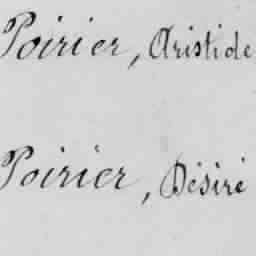 Poirier, Aristide
Poirier, Désiré